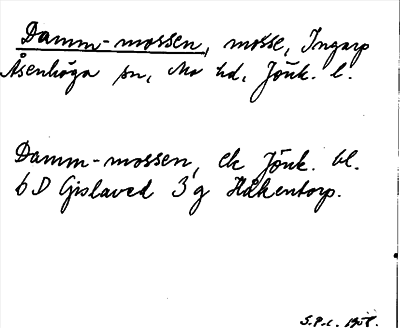 Damm-mossen, mosse, Ingarp
Åsenhöga sn, Mo hd, Jönk. l.
Damm-mossen, ek Jönk. bl.
6 D Gislaved 3 g Håkentorp.
S.P.c.